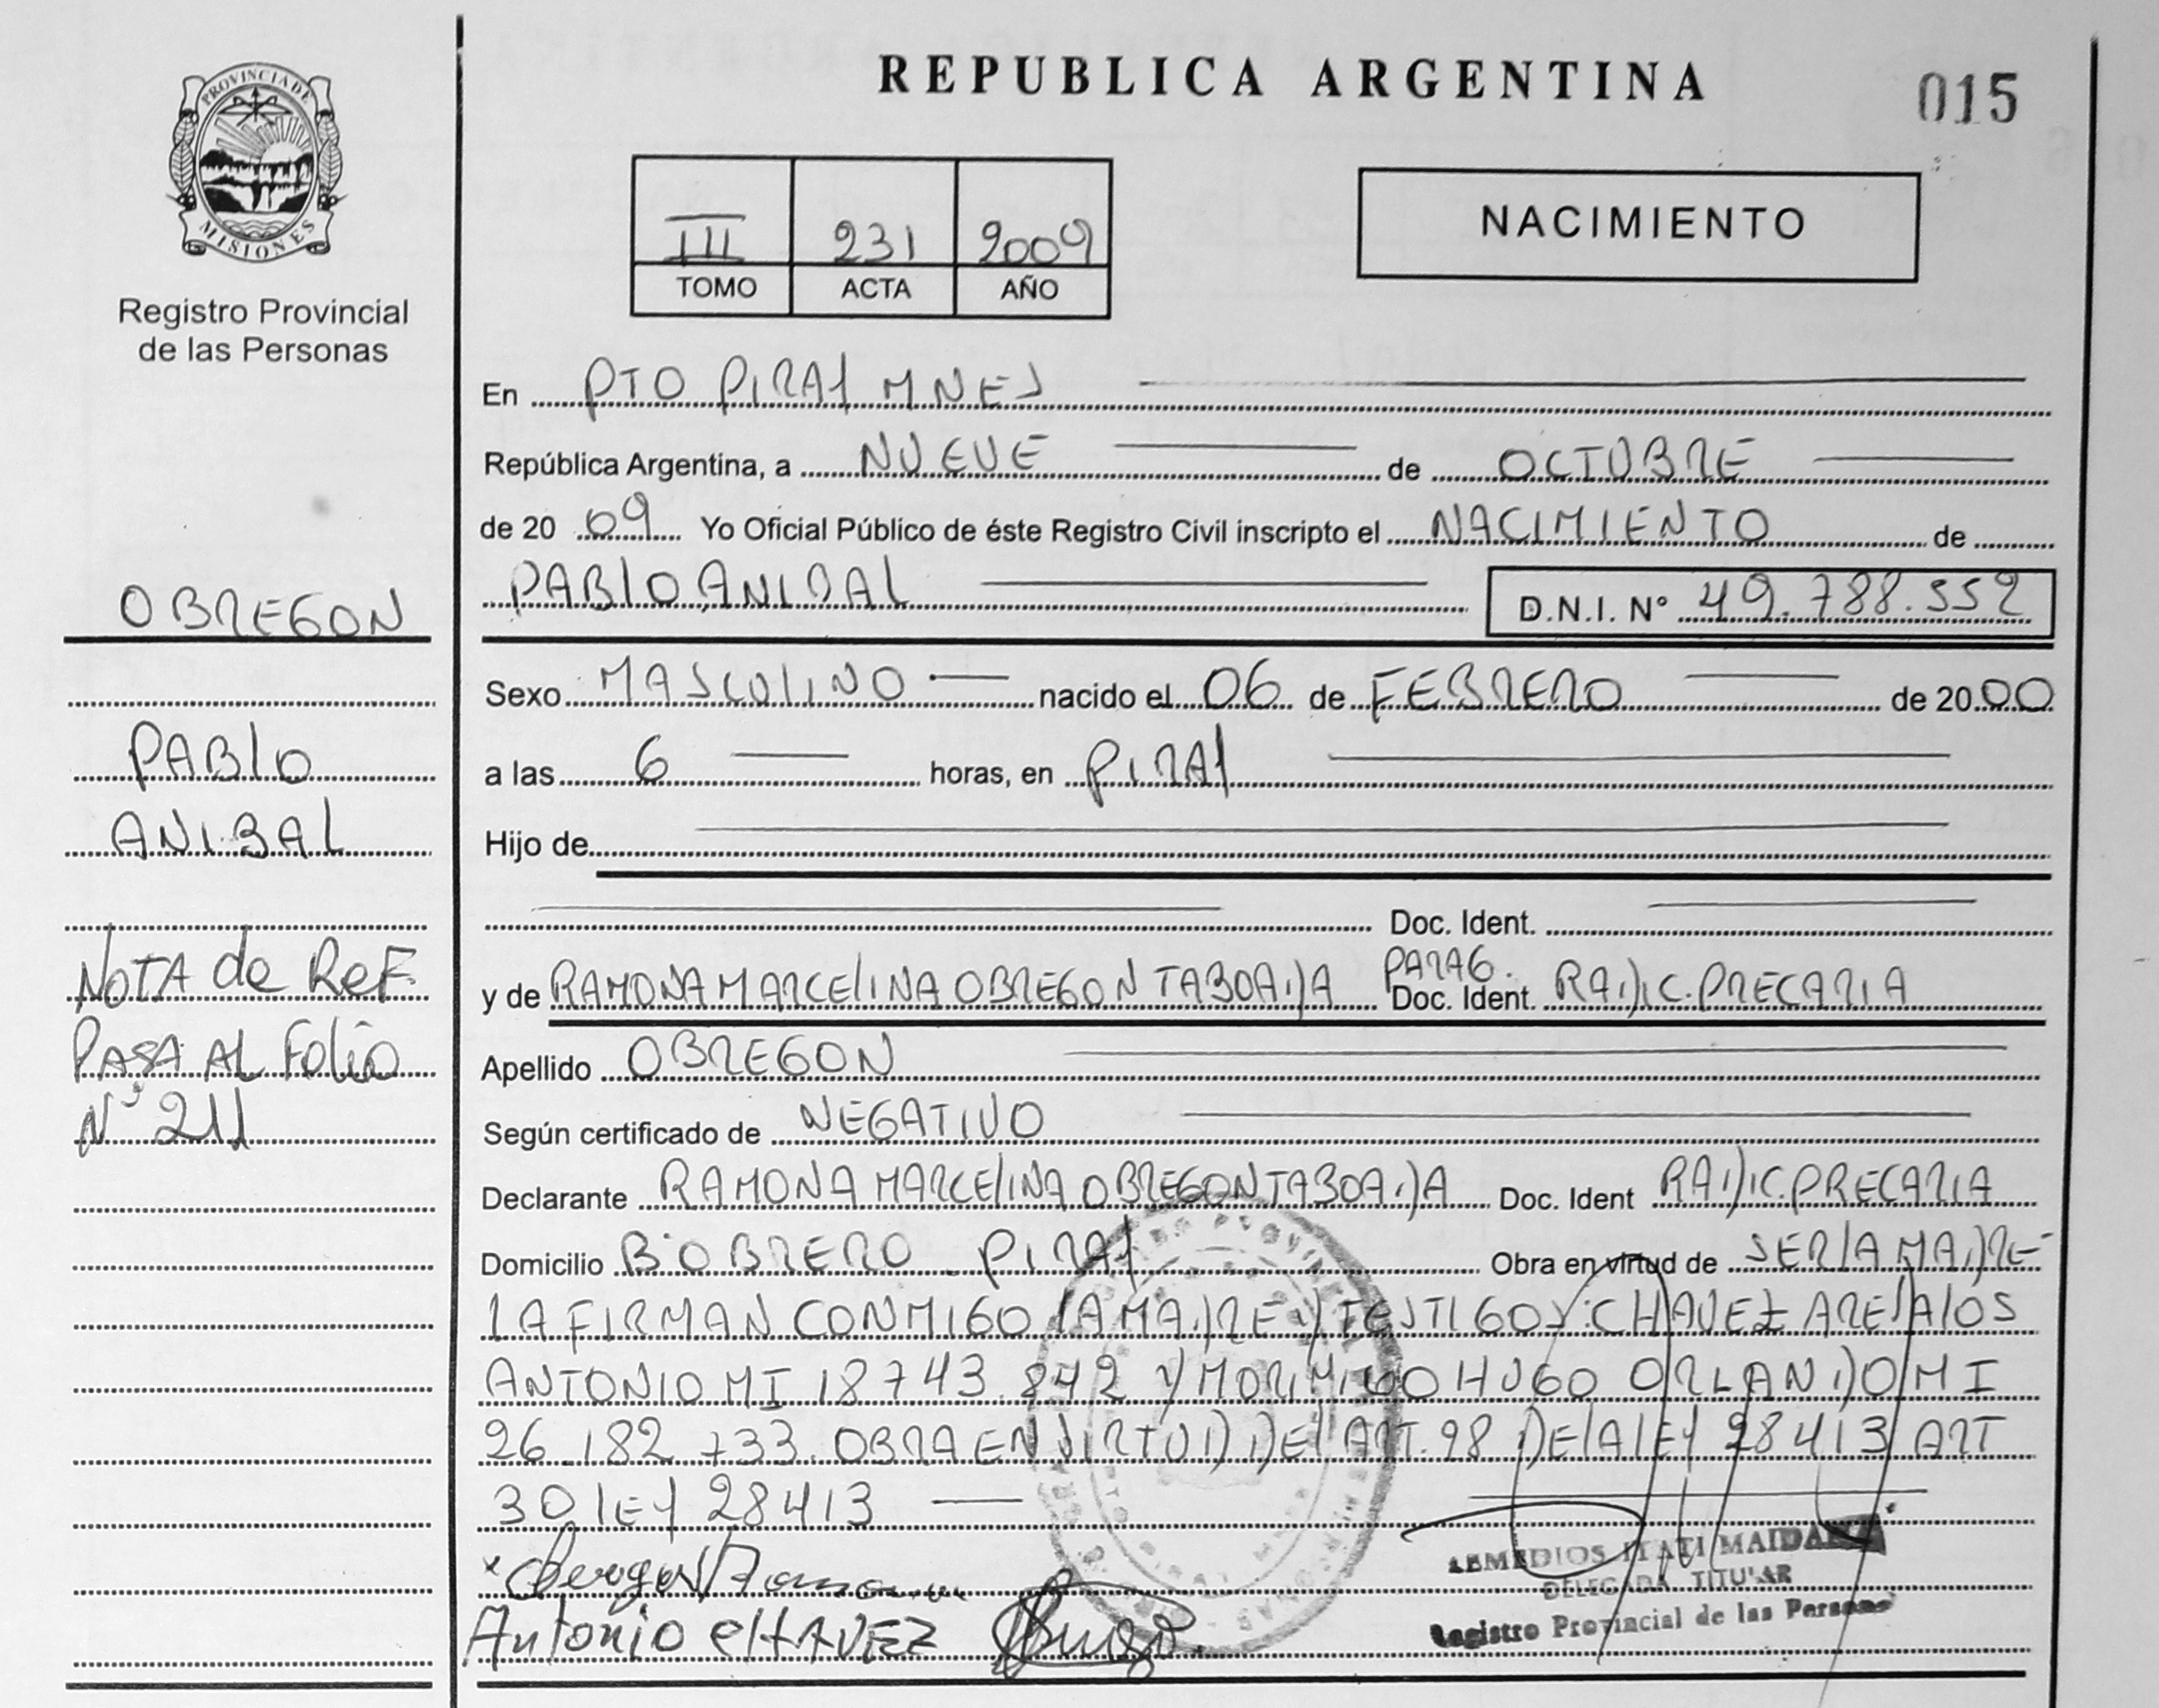 PROVINCIA DE
MISIONES
Registro Provincial
de las Personas
OBREGON
PABLO
ANIBAL
NOTA de ReF.
PASA AL Folio
N° 211
REPUBLICA ARGENTINA
015
III 231 2009
TOMO ACTA AÑO
NACIMIENTO
En PTO PIRAY MNES
República Argentina, a NUEVE de OCTUBRE
de 20 09 Yo Oficial Público de éste Registro Civil inscripto el NACIMIENTO de
PABLO ANIBAL D.N.I. N° 49.788.552
Sexo MASCULINO nacido el 06 de FEBRERO de 20 00
a las 6 horas, en PIRAY
Hijo de
Doc. Ident.
PARAG.
y de RAMONA MARCELINA OBREGON TABOADA Doc. Ident. RADIC. PRECARIA
Apellido OBREGON
Según certificado de NEGATIVO
Declarante RAMONA MARCELINA OBREGON TABOADA Doc. Ident RADIC. PRECARIA
Domicilio B° OBRERO PIRAY Obra en virtud de SER LA MADRE
LA FIRMAN CONMIGO LA MADRE Y TESTIGOS: CHAVEZ AREVALOS
ANTONIO MI 18743.842 Y HUGO ORLANDO MI
26.182.733. OBRA EN VIRTUD DEL ART. 98 DE LA LEY 28413 ART
30 LEY 28413
Antonio CHAVEZ
REMEDIOS ITATI MAIDANA
DELEGADA TITULAR
Registro Provincial de las Personas